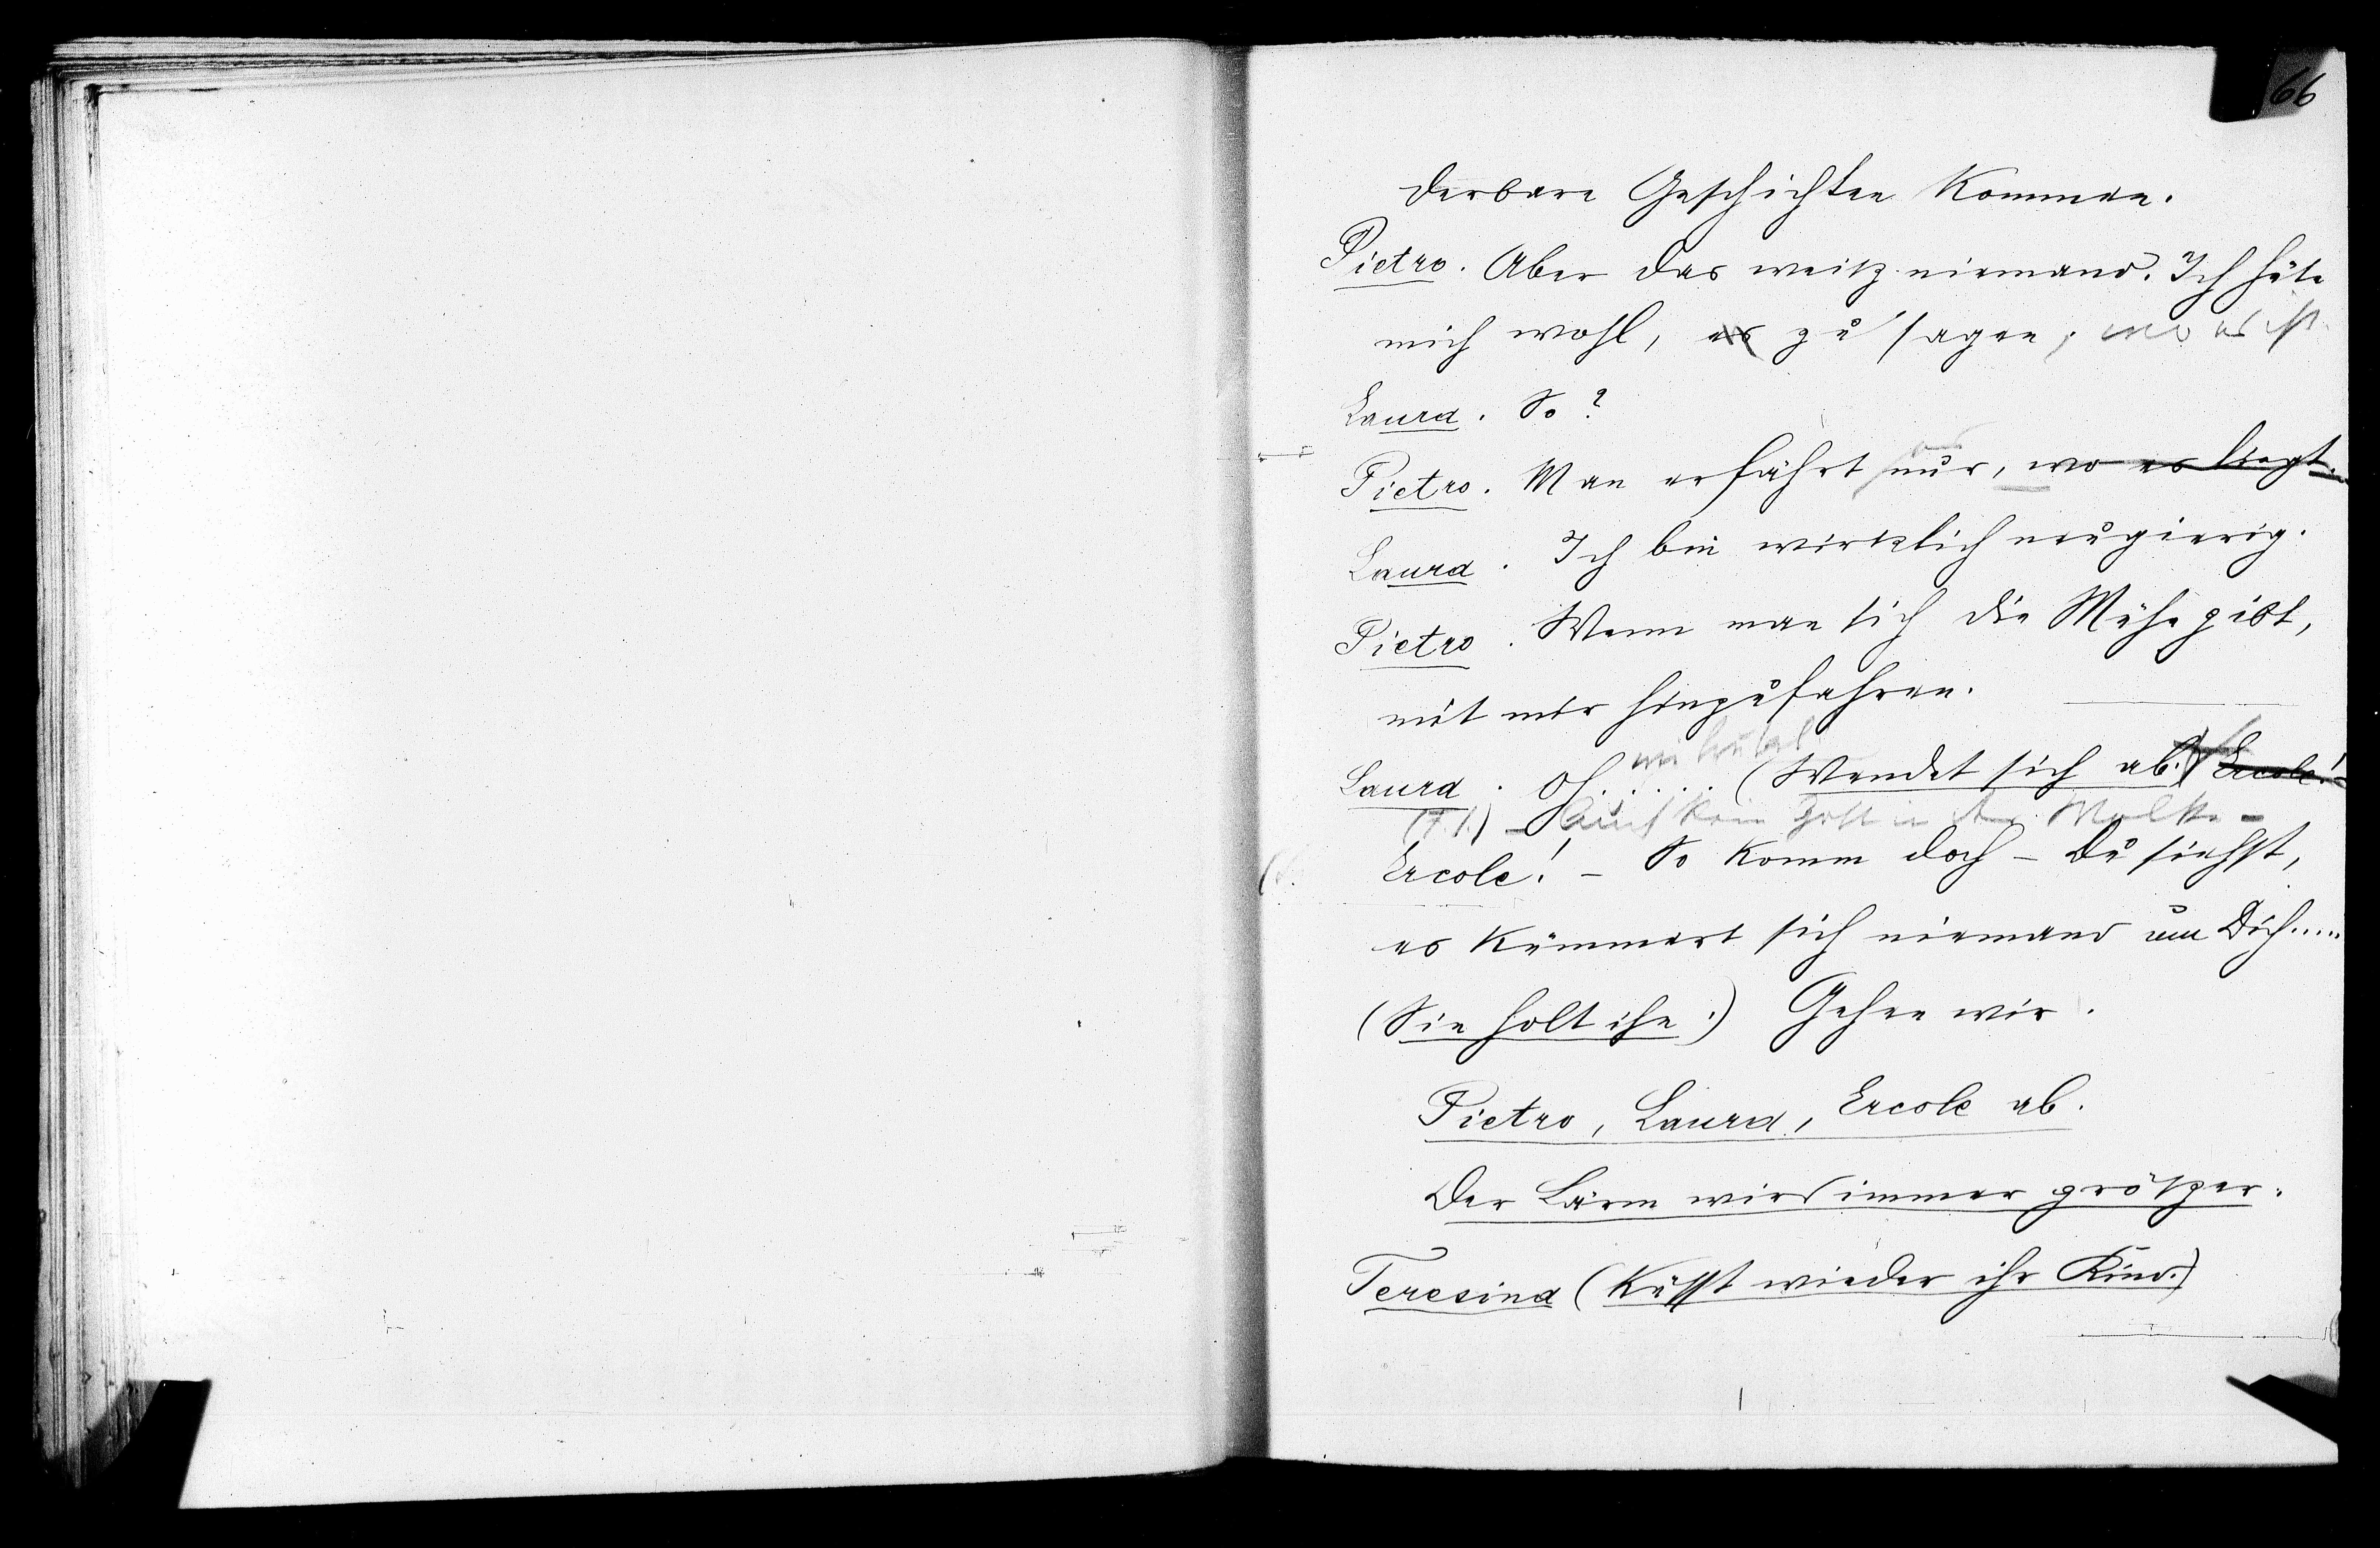 66
derbare Geschichten kommen.
Pietro. Aber das weiß niemand. Ich hüte
mich wohl, es zu sagen, wo es ist.
Laura. So?
Pietro. Man erfährt nur, wo es liegt.
Laura. Ich bin wirklich neugierig.
Pietro. Wenn man sich die Mühe gibt,
mit mir hinzufahren.
Laura. Oh...... (Wendet sich ab.) Ercole!
Auch kein Gott in der Wolke –
Ercole! – So komm doch – Du siehst,
es kümmert sich niemand um Dich.....
(Sie holt ihn.) Gehen wir.
Pietro, Laura, Ercole ab.
Der Lärm wird immer größer.
Teresina (Küsst wieder ihr Kind.)